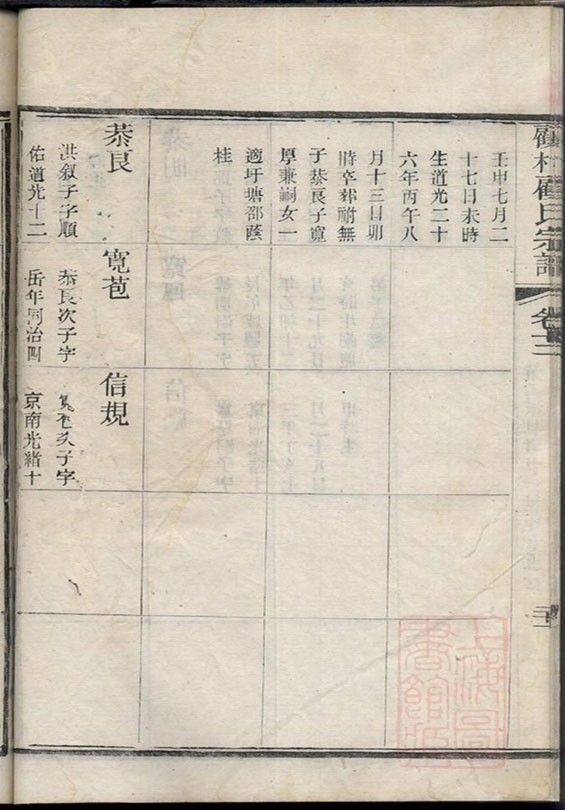 顧氏宗譜
壬申七月二
十七日未時
生道光二十
六年丙午八
月十三日卯
時卒葬祔無
子恭良子寬
厚兼嗣女一
適圩塘邵蔭
桂
恭良
洪敘子字順
佑道光十二
寬苞
恭良次子字
岳年同治四
信規
寬苞次子字
京南光緒十